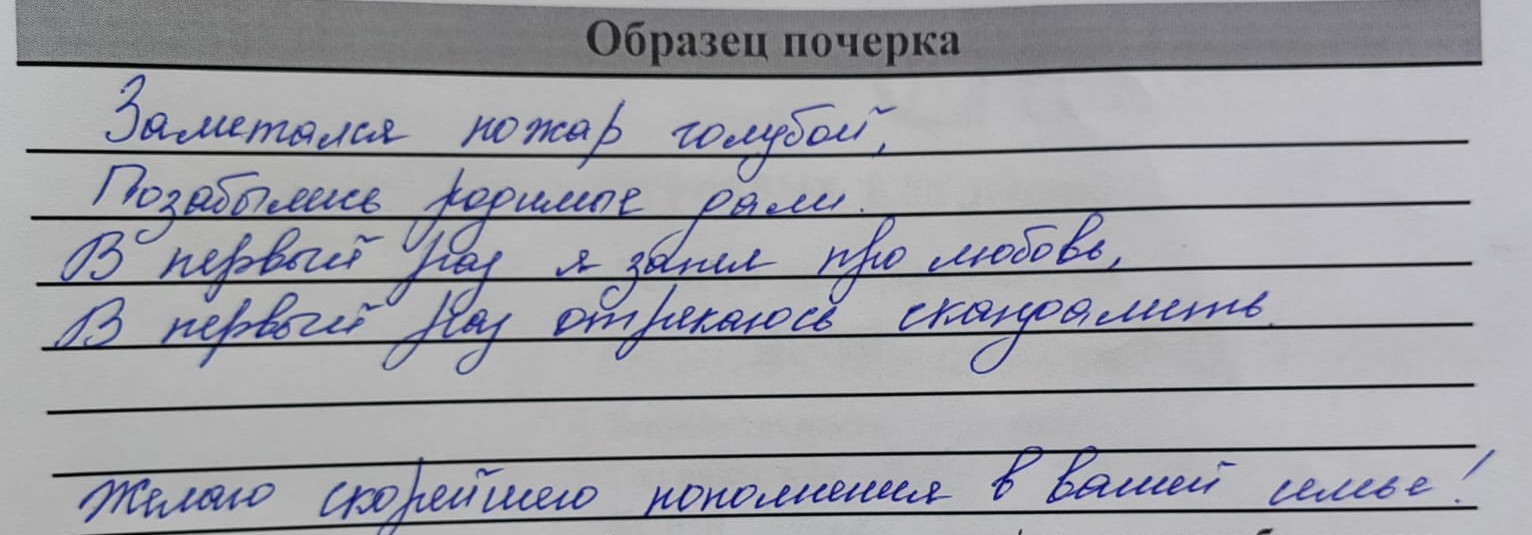 Образец почерка
Заметался пожар голубой,
Позабылись родимые дали.
В первый раз я запел про любовь,
В первый раз отрекаюсь скандалить.
Желаю скорейшего пополнения в вашей семье!